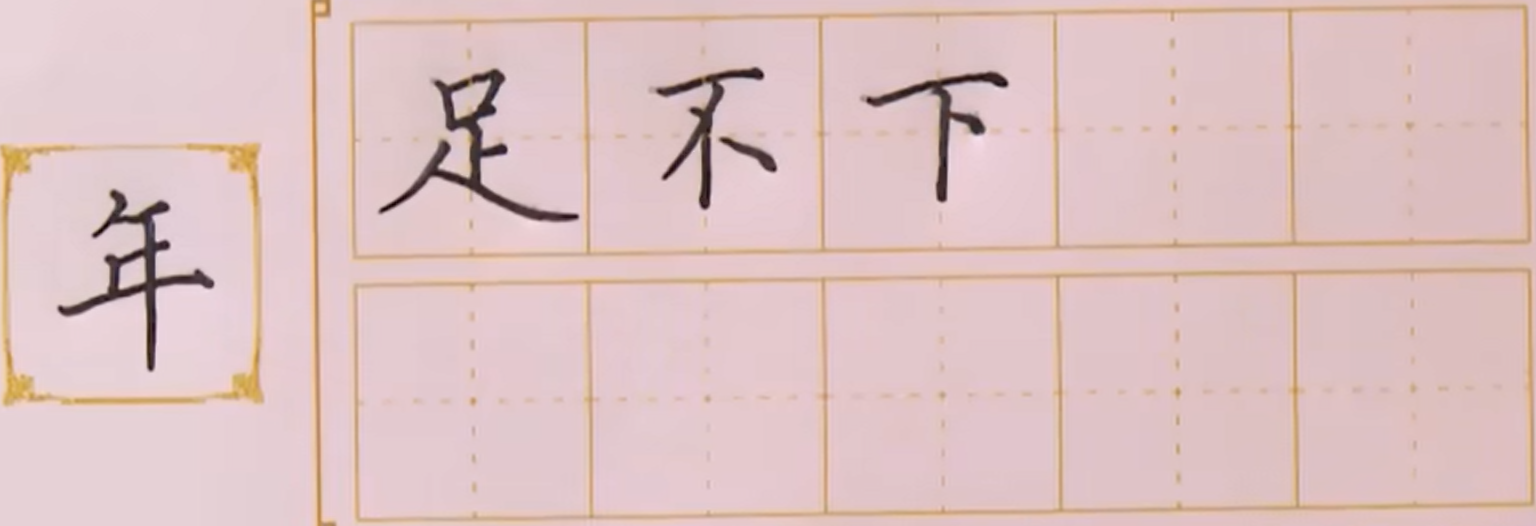 年
足不下